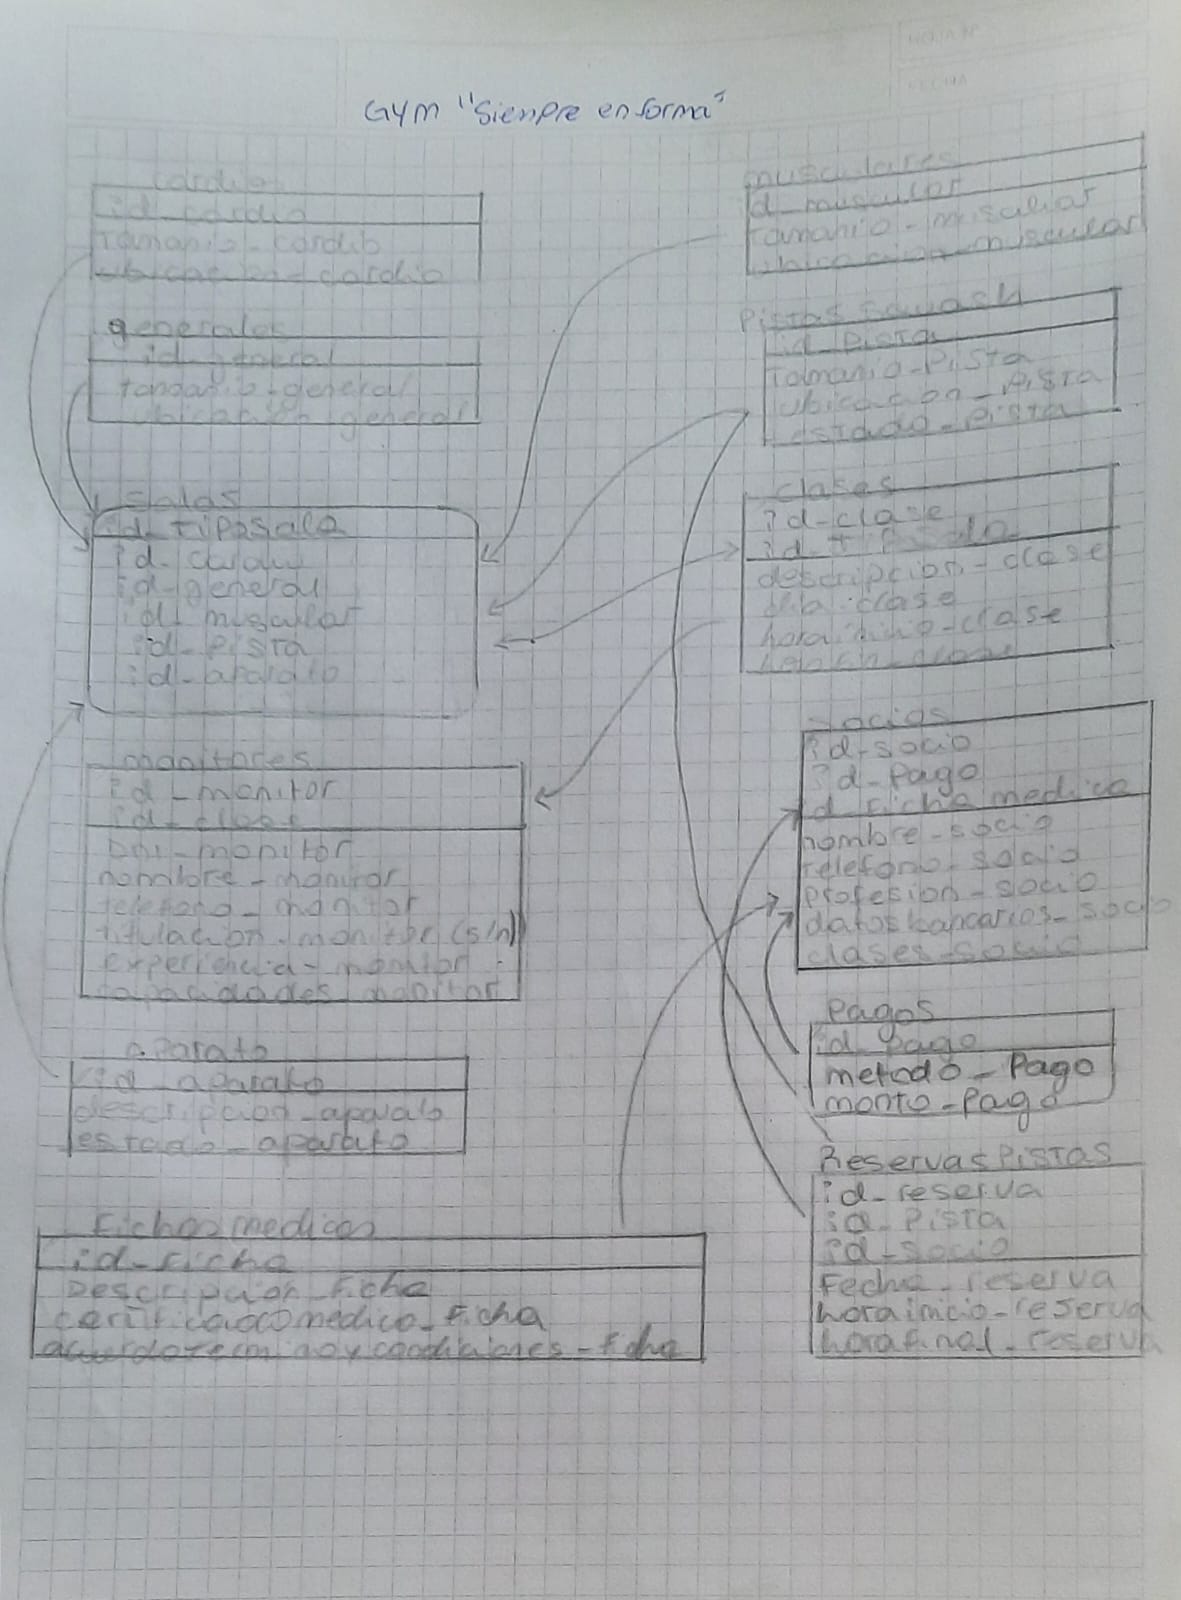 HOJA Nº
FECHA
Gym "Siempre en forma"
cardio
id_cardio
tamanio_cardio
ubicacion_cardio
generales
id_general
tamanio_general
ubicacion_general
Salas
id_tiposala
id_cardio
id_general
id_muscular
id_pista
id_aparato
monitores
id_monitor
id_clase
DNI_monitor
nombre_monitor
telefono_monitor
titulacion_monitor (s/n)
experiencia_monitor
capacidades_monitor
aparato
id_aparato
descripcion_aparato
estado_aparato
Fichas medicas
id_ficha
Descripcion_ficha
certificado medico_ficha
musculares
id_muscular
tamanio_muscular
ubicacion_muscular
Pistas Squash
id_pista
Tamanio_Pista
ubicacion_Pista
estado_pista
clases
id_clase
id_tiposala
descripcion_clase
dia_clase
horainicio_clase
Socios
id_socio
id_pago
id_ficha medica
nombre_socio
telefono_socio
profesion_socio
datosbancarios_socio
clases_socio
Pagos
id_pago
metodo_Pago
monto_Pago
Reservas Pistas
id_reserva
id_Pista
id_socio
Fecha_reserva
horainicio_reserva
horafinal_reserva